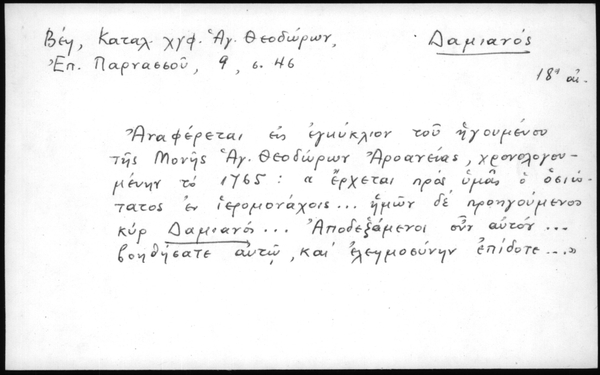 Βέη, Καταλ. χγφ. Ἁγ. Θεοδώρων,
Δαμιανός
Ἐπ. Παρνασσοῦ, 9, σ. 46
18ου αἰ.
Ἀναφέρεται εἰς ἐγκύκλιον τοῦ ἡγουμένου
τῆς Μονῆς Ἁγ. Θεοδώρων Ἀροανείας, χρονολογου-
μένην τό 1765: « ἔρχεται πρός ὑμᾶς ὁ ὁσιώ-
τατος ἐν ἱερομονάχοις... ἡμῶν δέ προηγούμενος
κύρ Δαμιανός... Ἀποδεξάμενοι οὖν αὐτόν...
βοηθήσατε αὐτῷ, καί ἐλεημοσύνην ἐπίδοτε...»